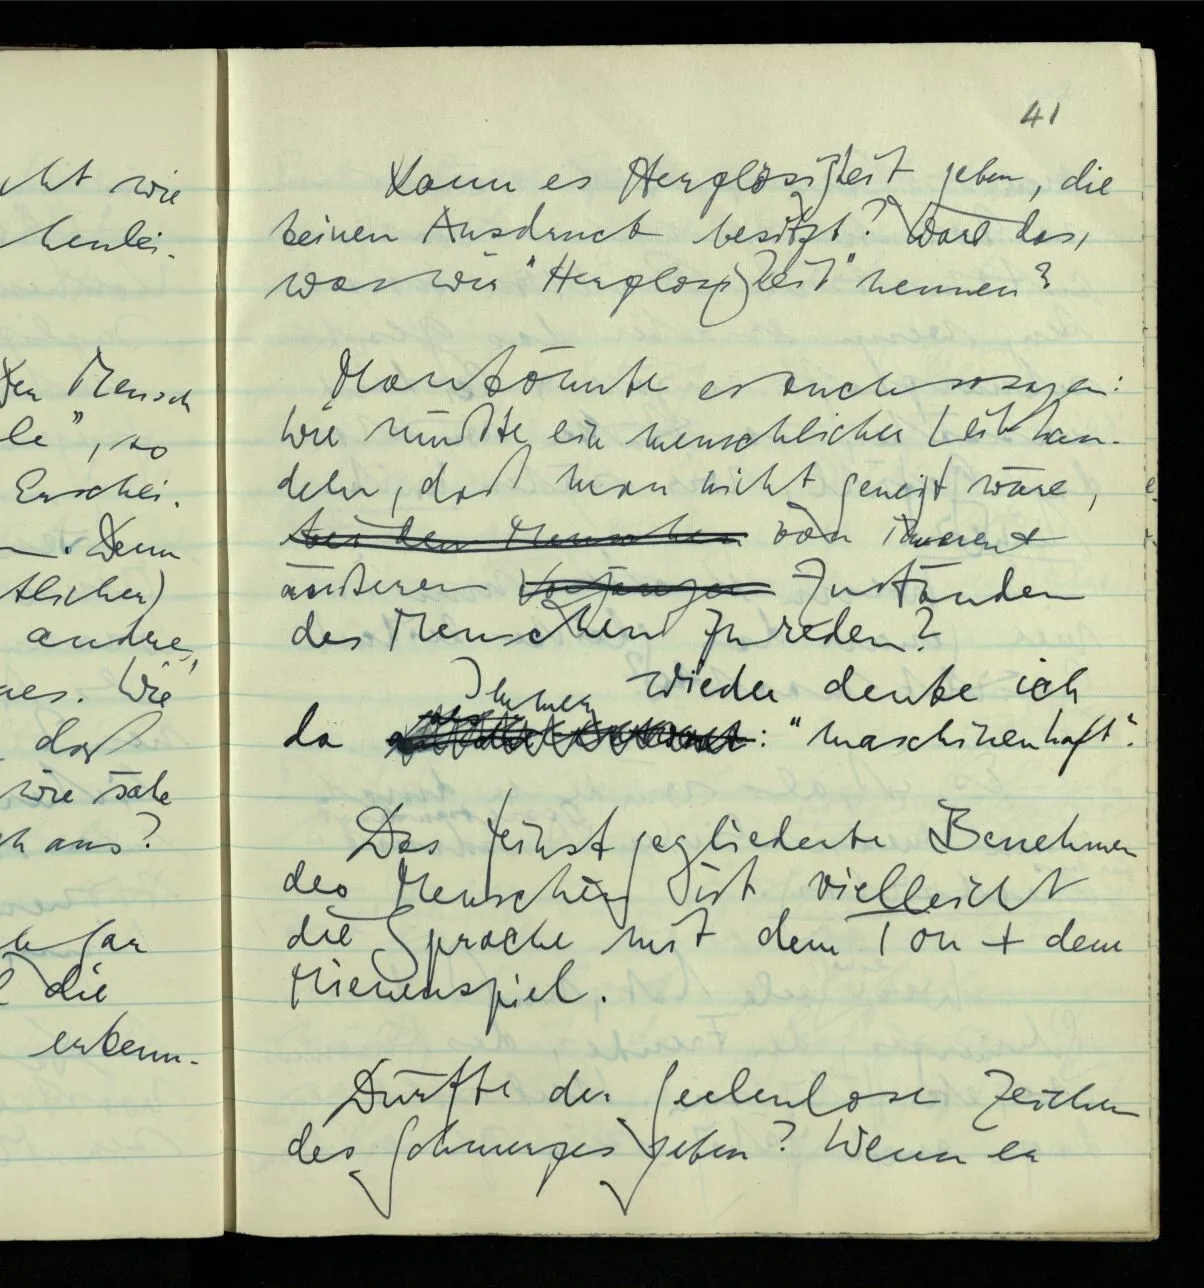 cht wie
henlei-
den Mensch
le", so
Erschei-
Denn
tlichen)
andre,
es. Wie
daß
wie sähe
aus?
gar
die
erkenn-
41
Kann es Herzlosigkeit geben, die
keinen Ausdruck besitzt? Wäre das,
was wir "Herzlosigkeit" nennen?
Man könnte es auch so sagen:
Wie müßte ein menschlicher Leib han-
deln, daß man nicht geneigt wäre,
bei den Menschen von inneren +
äußeren Vorgängen Zuständen
des Menschen zu reden?
Immer wieder denke ich
da : "maschinenhaft".
Das feinst gegliederte Benehmen
des Menschen ist vielleicht
die Sprache mit dem Ton + dem
Mienenspiel.
Dürfte der Seelenlose Zeichen
des Schmerzes geben? Wenn er